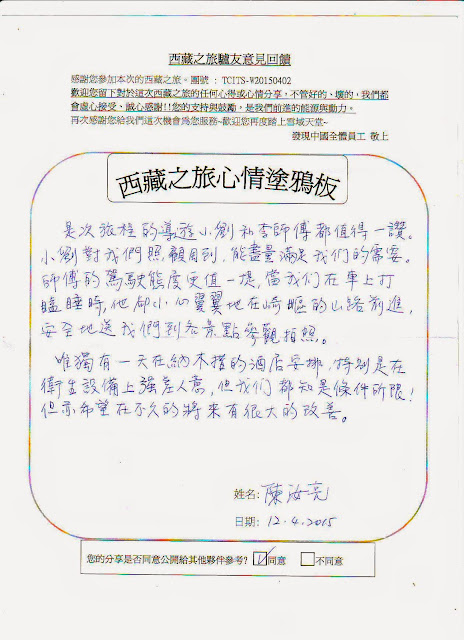 西藏之旅驢友意見回饋
感謝您參加本次的西藏之旅。團號：TCITS-W20150402
歡迎您留下對於這次西藏之旅的任何心得或心情分享，不管好的、壞的，我們都
會虛心接受、誠心感謝!!您的支持與鼓勵，是我們前進的能源與動力。
再次感謝您給我們這次機會為您服務~歡迎您再度踏上雪域天堂~
發現中國全體員工 敬上
西藏之旅心情塗鴉板
是次旅程的導遊小劉和李師傅都值得一讚。
小劉對我們照顧周到，能盡量滿足我們的需要。
師傅的駕駛態度更值一提，當我们在車上打
瞌睡時，他卻小心翼翼地在崎嶇的山路前進，
安全地送我們到各景點參觀拍照。
唯獨有一天在納木措的酒店安排，特別是在
衛生設備上強差人意，但我们都知是條件所限！
但亦希望在不久的將來有很大的改善。
姓名: 陳汝亮
日期: 12.4.2015
您的分享是否同意公開給其他夥伴參考? ☑同意 □不同意